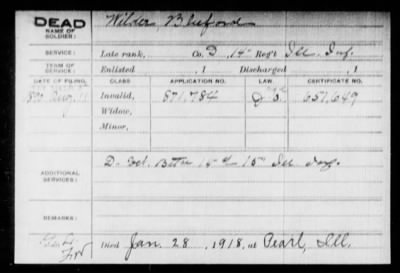 DEAD
NAME OF SOLDIER:
Wilder, Bluford
SERVICE:
Late rank, Co. D, 14" Reg't Ill. Inf.
TERM OF SERVICE:
Enlisted , 1 Discharged , 1
DATE OF FILING. CLASS. APPLICATION NO. LAW. CERTIFICATE NO.
Aug. Invalid, 871,784 657,649
Widow,
Minor,
ADDITIONAL SERVICES:
D. Vet. Batt'n 14 & 15" Ill Inf.
REMARKS:
Died Jan. 28, 1918, at Pearl, Ill.